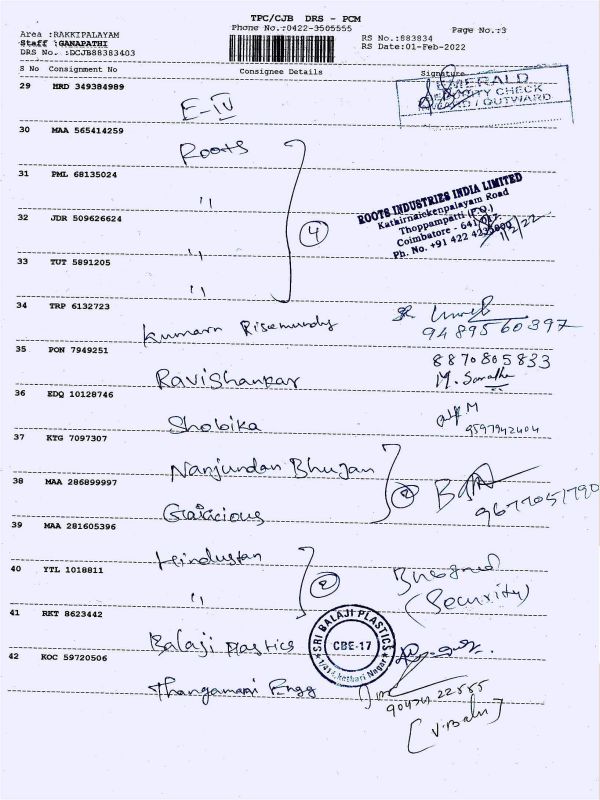 TPC/CJB DRS - PCM
Phone No.:0422-3505555
Page No.:3
Area :RAKKIPALAYAM
Staff :GANAPATHI
DRS No. :DCJB88383403
RS No.:883834
RS Date:01-Feb-2022
S No Consignment No Consignee Details Signature
EMERALD
SECURITY CHECK
INWARD / OUTWARD
29 MRD 349384989
E-IV
30 MAA 565414259
Roots
31 PML 68135024
"
ROOTS INDUSTRIES INDIA LIMITED
Kathirnaickenpalayam Road
Thoppampatti (P.O.)
Coimbatore - 641
Ph. No. +91 422
1/2/22
32 JDR 509626624
"
4
33 TUT 5891205
"
34 TRP 6132723
Kumarn
9489560397
35 PON 7949251
Ravishankar
8870805833
36 EDQ 10128746
Shobika
9597942404
37 KTG 7097307
Nanjundan Bhujan
38 MAA 286899997
2
9677051790
39 MAA 281605396
Hindustan
40 YTL 1018811
"
2
(Security)
41 RKT 8623442
Balaji plastics
SRI BALAJI PLASTICS
CBE-17
Kethari Nagar
42 KOC 59720506
Thangamani Engg
9047422555
[V.Balu]